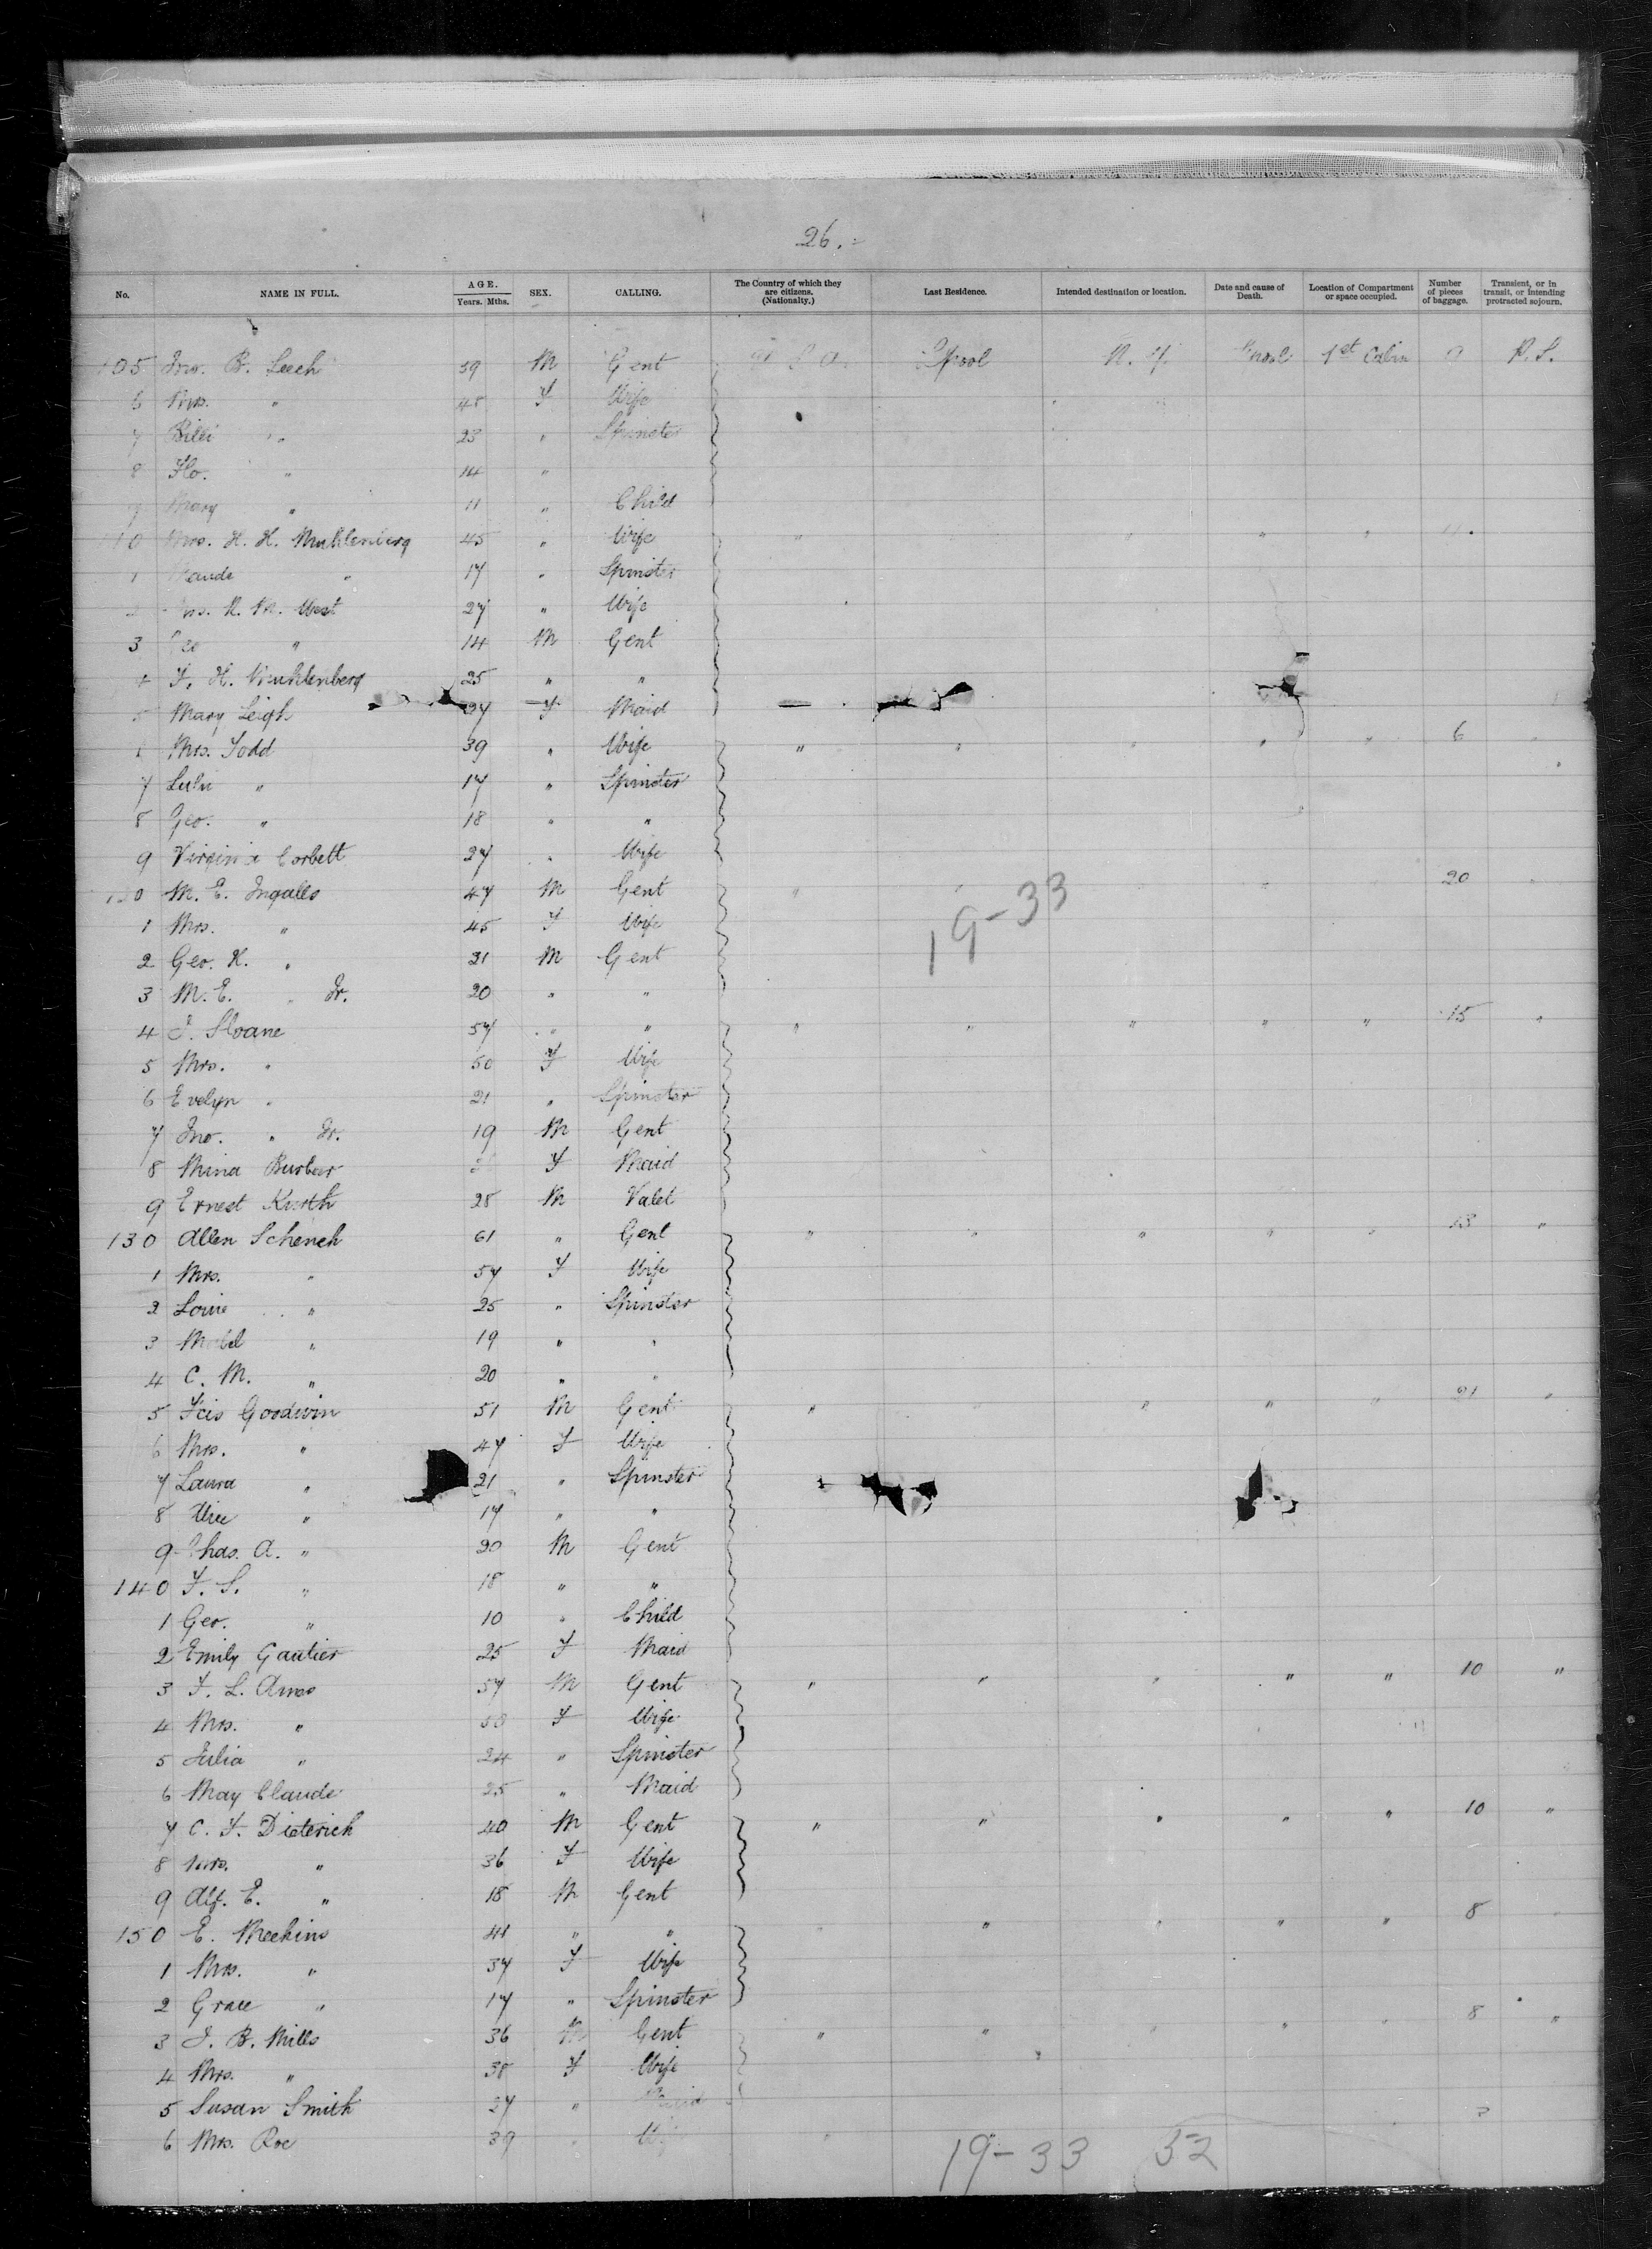 26.
No. NAME IN FULL. AGE. Years. Mths. SEX. CALLING. The Country of which they are citizens. (Nationalty.) Last Residence. Intended destination or location. Date and cause of Death. Location of Compartment or space occupied. Number of pieces of baggage. Transient, or in transit, or intending protracted sojourn.
105 Jno. B. Leech 59 M Gent U.S.A. L'pool N.Y. 1st Cabin 9 P.S.
6 Mrs. " 48 F Wife
7 Billi " 23 " Spinster
8 Flo. " 14 "
9 Mary " 11 " Child
110 Mrs. H. H. Muhlenberg 45 " Wife " " " " 11
1 Maude " 17 " Spinster
2 Mrs. H. M. West 27 " Wife
3 Geo " 14 M Gent
4 F. H. Muhlenberg 25 " "
5 Mary Leigh 27 F Maid
6 Mrs. Todd 39 " Wife " " " " " 6 "
7 Lulu " 17 " Spinster
8 Geo. " 18 " "
9 Virginia Corbett 27 " Wife
120 M. E. Ingalls 47 M Gent " " " " 20 "
1 Mrs. " 45 F Wife
19-33
2 Geo. H. " 21 M Gent
3 M. E. " Jr. 20 " "
4 J. Sloane 57 " " " " " " " 15 "
5 Mrs. " 50 F Wife
6 Evelyn " 21 " Spinster
7 Jno. " Jr. 19 M Gent
8 Mina Burber F Maid
9 Ernest Kurth 28 M Valet
130 Allen Schenck 61 " Gent " " " " " 13 "
1 Mrs. " 57 F Wife
2 Louie " 25 " Spinster
3 Mabel " 19 " "
4 C. M. " 20 " "
5 Fcis Goodwin 51 M Gent " " " " 21 "
6 Mrs. " 47 F Wife
7 Laura " 21 " Spinster
8 " 17 " "
9 Chas. A. " 20 M Gent
140 F. S. " 18 " "
1 Geo. " 10 " Child
2 Emily Gautier 25 F Maid
3 F. L. Ames 57 M Gent " " " " " 10 "
4 Mrs. " 50 F Wife
5 Julia " 24 " Spinster
6 May Claude 25 " Maid
7 C. F. Dieterich 40 M Gent " " " " " 10 "
8 Mrs. " 36 F Wife
9 Alf. E. " 18 M Gent
150 E. Meekins 41 " " " " " " " 8 "
1 Mrs. " 37 F Wife
2 Grace " 17 " Spinster
3 J. B. Mills 36 M Gent " " " " " 8 "
4 Mrs. " 38 F Wife
5 Susan Smith 27 " Maid
6 Mrs. Roe 39 " 3
19-33 52